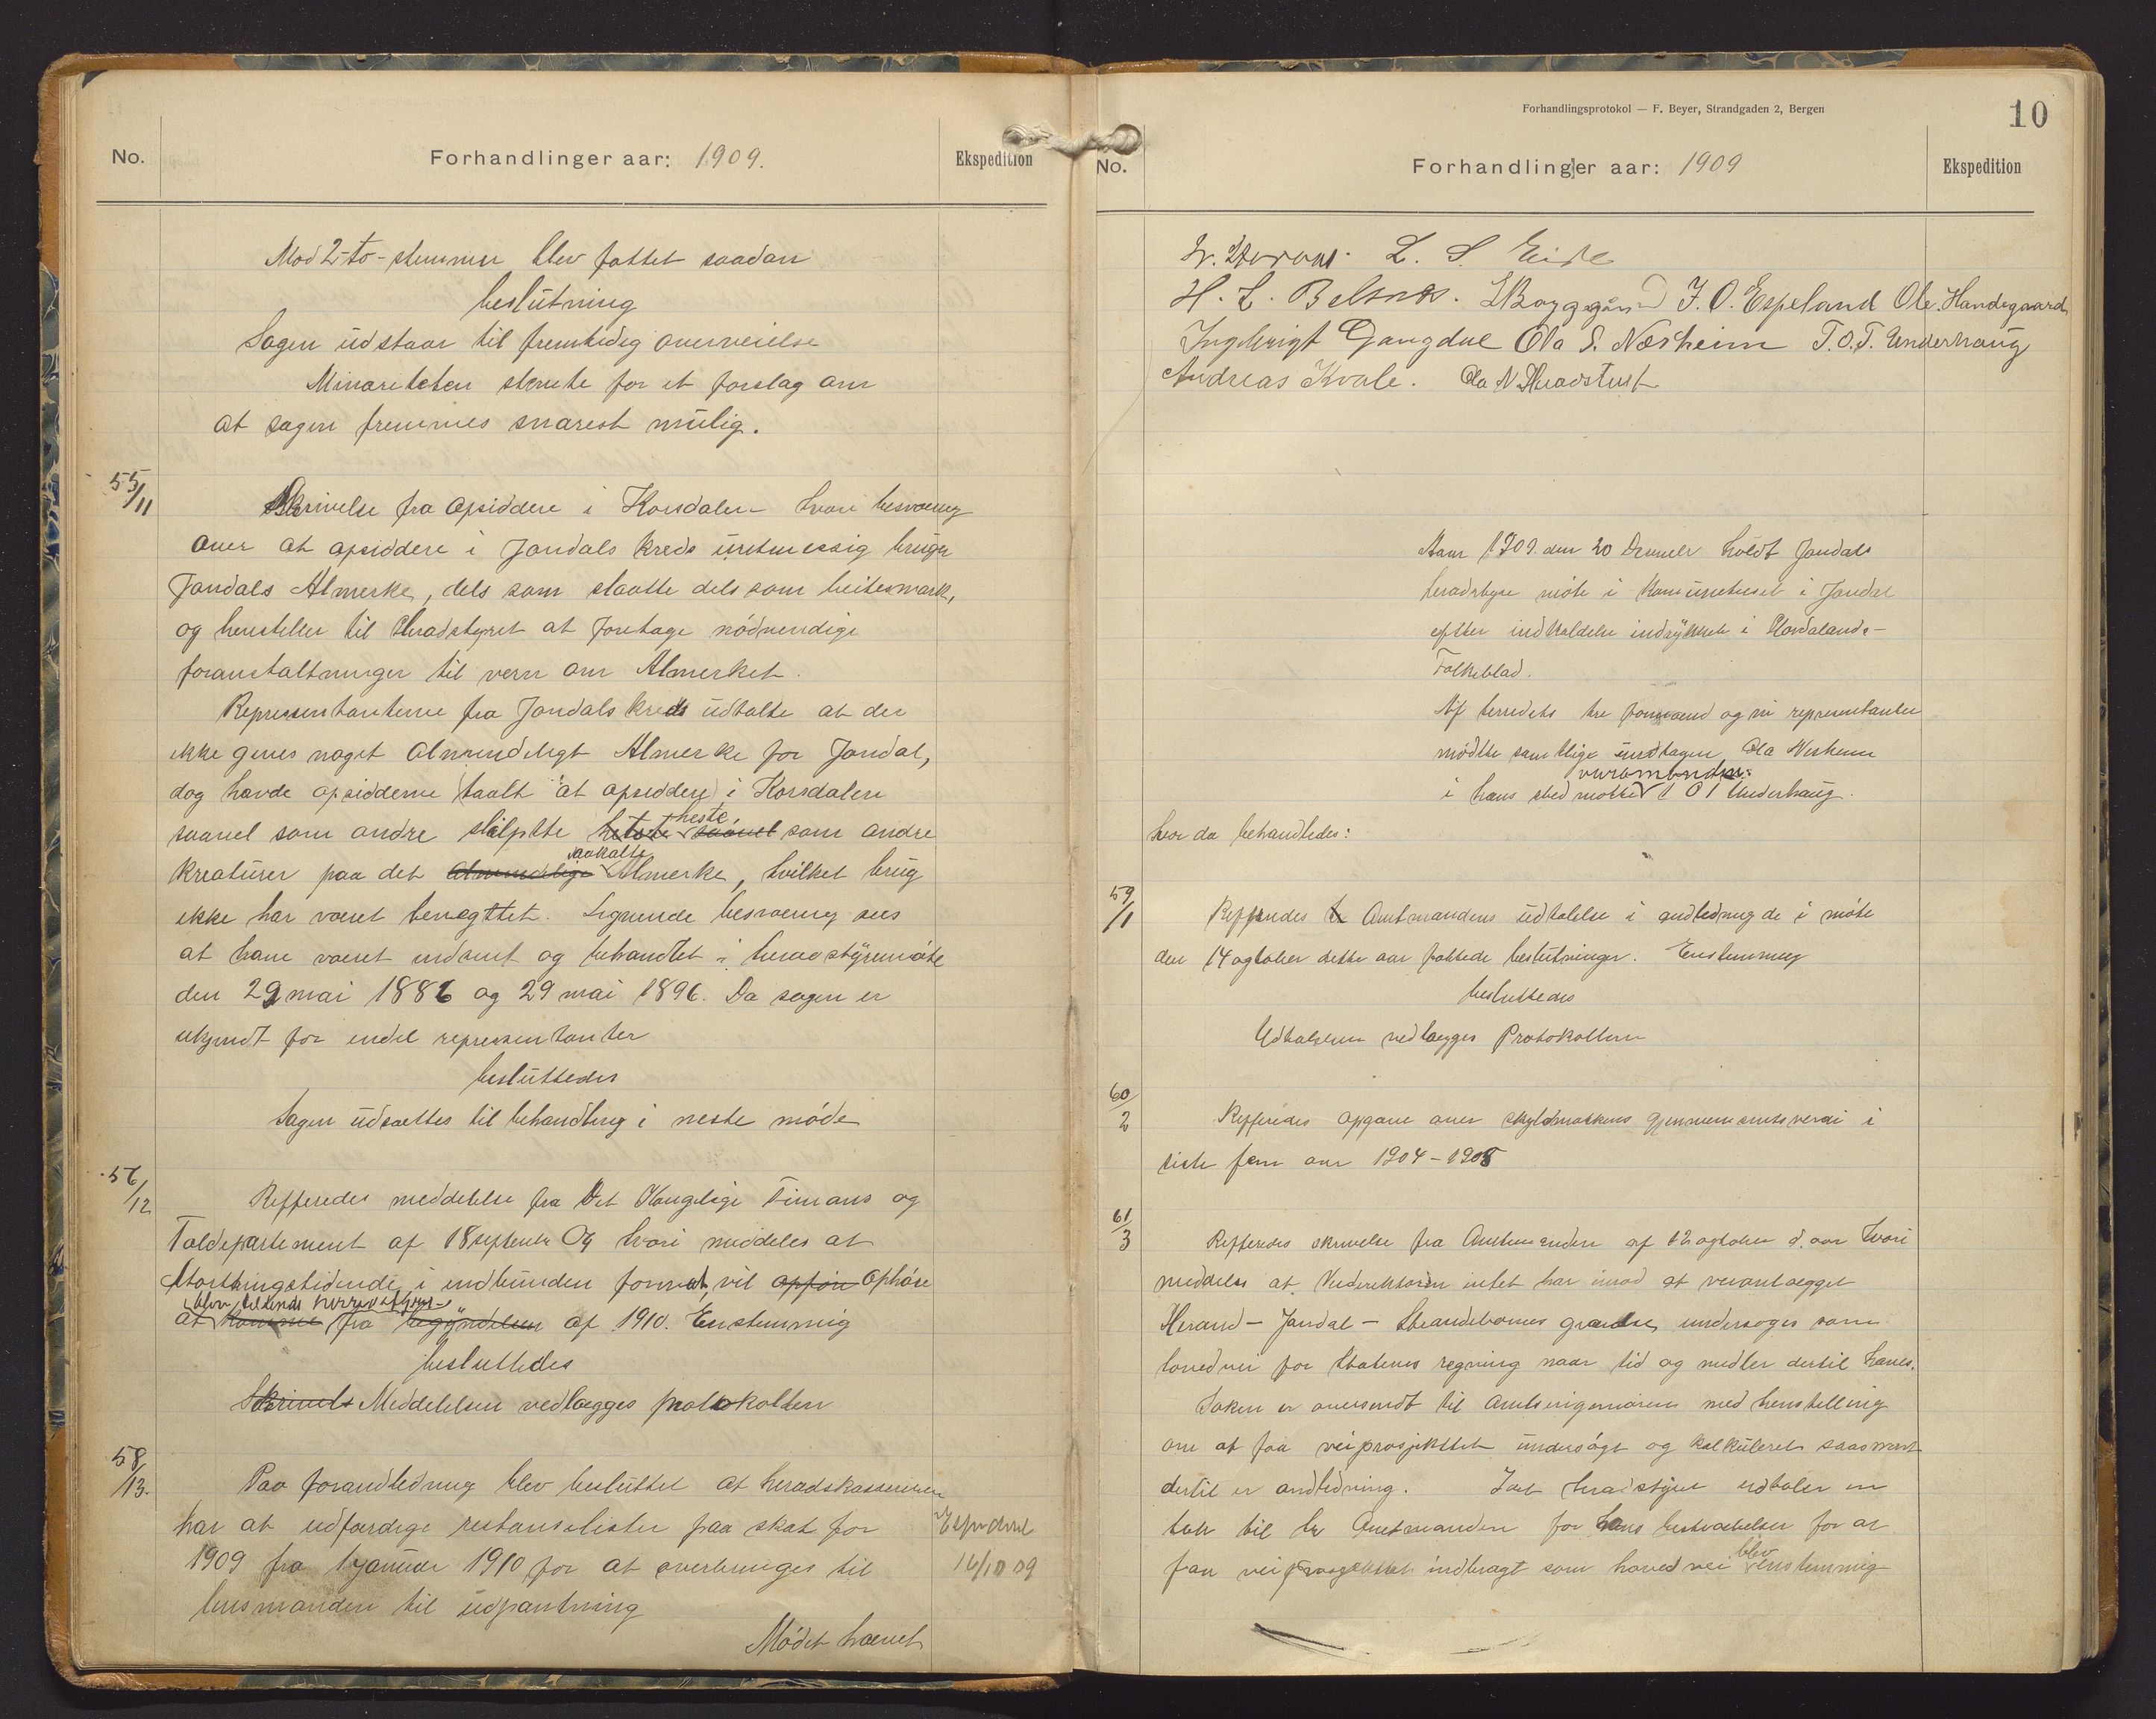 No.
Forhandlinger aar: 1909.
Ekspedition
Mod 2-to-stemmer blev fattet saadan
beslutning
Sagen udstaar til fremtidig overveielse
Minoriteten stemte for et forslag om
at sagen fremmes snarest mulig.
55/11
Skrivelse fra opsiddere i Korsdalen hvori besværing
over at opsiddere i Jondals kreds uretmessig bruger
Jondals Almerke, dels som slaatte dels som beitesmark,
og henstiller til Heradstyret at foretage nödvendige
foranstaltninger til vern om Almerket.
Representanterne fra Jondals kreds udtalte at der
ikke gives noget Almindeligt Almerke for Jondal,
dog havde opsidderne taalt at opsiddere i Korsdalen
saavel som andre slapte heste som andre
kreaturer paa det saakalte Almerke, hvilket brug
ikke har været benegttet. Lignende besværing sees
at have været indsent og behandlet i heradstyremöte
den 29 mai 1886 og 29 mai 1896. Da sagen er
ukjendt for endel representanter
besluttedes
Sagen udsættes til behandling i neste möde
56/12
Refferedes meddelelse fra Det Kongelige Finans og
Toldepartement af 18 september 09 hvori meddeles at
Storthingstidende i indbunden format vil Ophöre
at blive tilsendt herredstyret fra af 1910. Enstemmig
besluttedes
Meddelelsen vedlægges protokollen
58/13.
Paa forandledning blev besluttet at heradskassereren
har at udfærdige restanselister paa skat for
1909 fra 1 januar 1910 for at overbringes til
lensmanden til udpantning
Mödet hævet
16/10 09
Forhandlingsprotokol — F. Beyer, Strandgaden 2, Bergen
10
No.
Forhandlinger aar: 1909
Ekspedition
L. S. Eide
H. L. Belsnes. J. O. Espeland Ole Handegaard
Ingebrigt Gangdal Ola S. Næsheim T.O.T. Underhaug
Andreas Kvale. Ola N.
Aar 1909 den 20 Desembr holdt Jondals
heradstyre möte i Komunehuset i Jondal
efter indkaldelse indrykket i Hordalands-
Folkeblad.
Af herredets tre formænd og ni representanter
mödte samtlige undtagen Ola Nesheim
i hans sted mötte varamanden T O T Underhaug.
hvor da behandledes:
59/1
Refferedes Amtmandens udtalelse i andledning de i möte
den 14 ogtober dette aar fattede beslutninger. Enstemmig
besluttedes
Udtalelsen vedlægges Protokollen
60/2
Refferedes opgave over skyldmarkens gjennemsnitsverdi i
siste fem aar 1904-1908
61/3
Refferedes skrivelse fra Amtmanden af 12 ogtober d. aar hvori
meddeles at Veidirektören intet har imod at veianlægget
Herand - Jondal - Strandebarmes grændse, undersöges som
hovedvei for Statens regning naar tid og midler dertil haves.
Saken er oversendt til Amtsingeniören med henstilling
om at faa veiprosjekttet undersögt og kalkuleret saasnart
dertil er andledning. Idet heradstyret udtaler en
tak til hr Amtmanden for hans bestræbelser for at
faa veiprosjekttet indbragt som hovedvei blev enstemmig